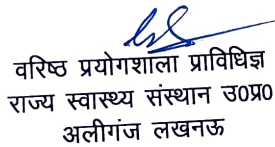 वरिष्ठ प्रयोगशाला प्राविधिज्ञ
राज्य स्वास्थ्य संस्थान उ0प्र0
अलीगंज लखनऊ